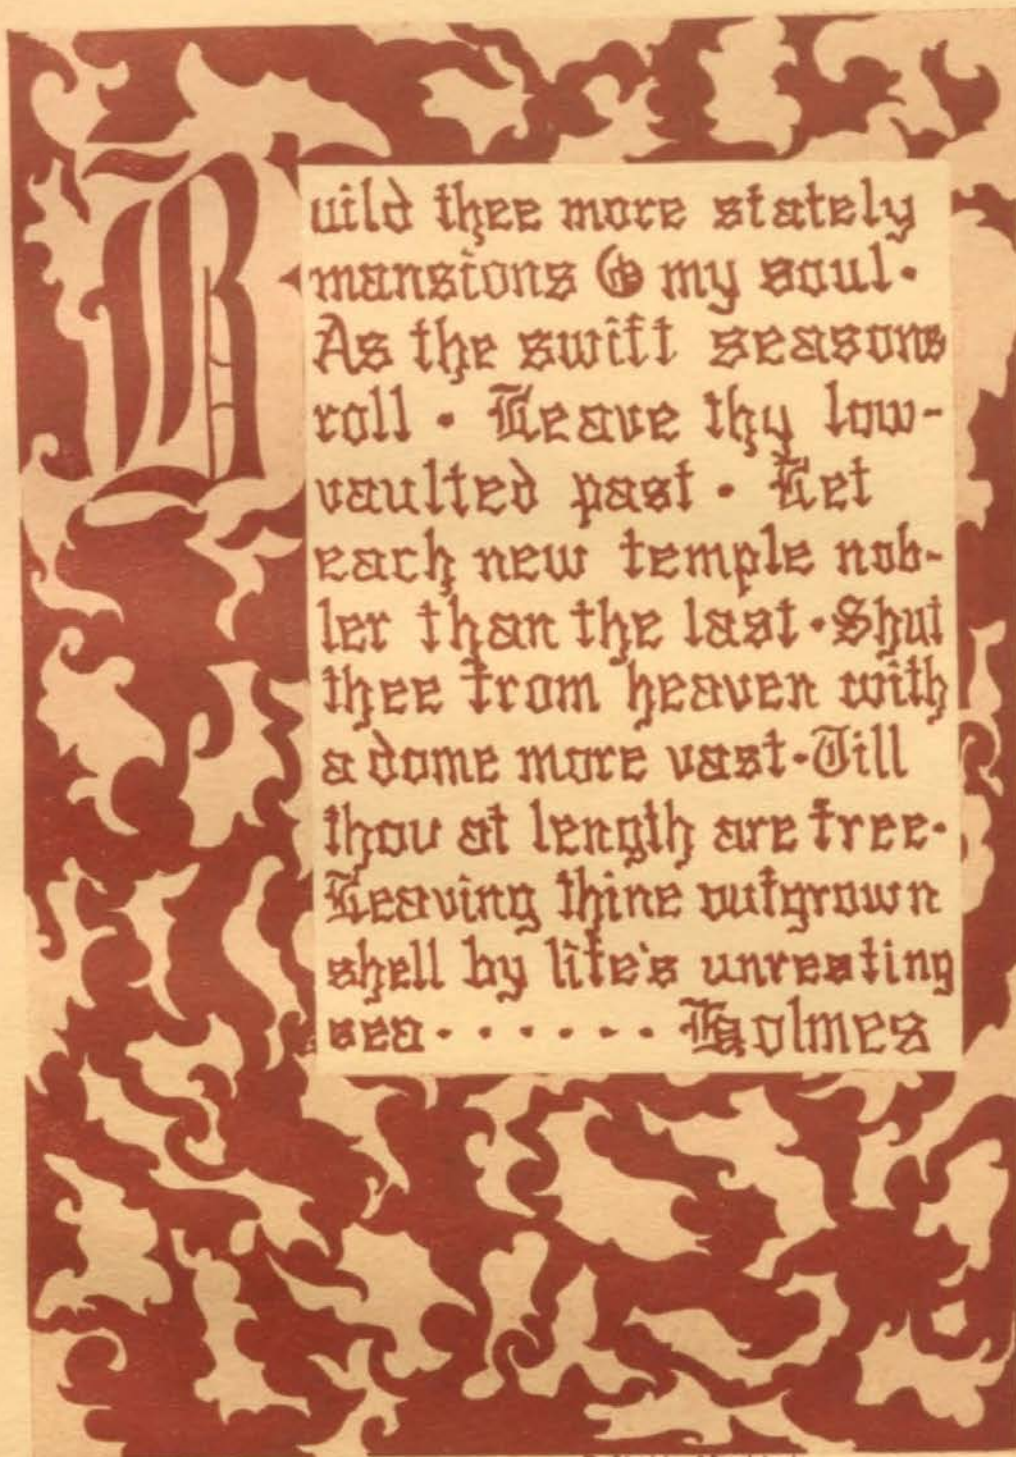 Build thee more stately
mansions O my soul.
As the swift seasons
roll · Leave thy low-
vaulted past · Let
each new temple nob-
ler than the last · Shut
thee from heaven with
a dome more vast · Till
thou at length are free ·
Leaving thine outgrown
shell by life's unresting
sea · · · · · · Holmes